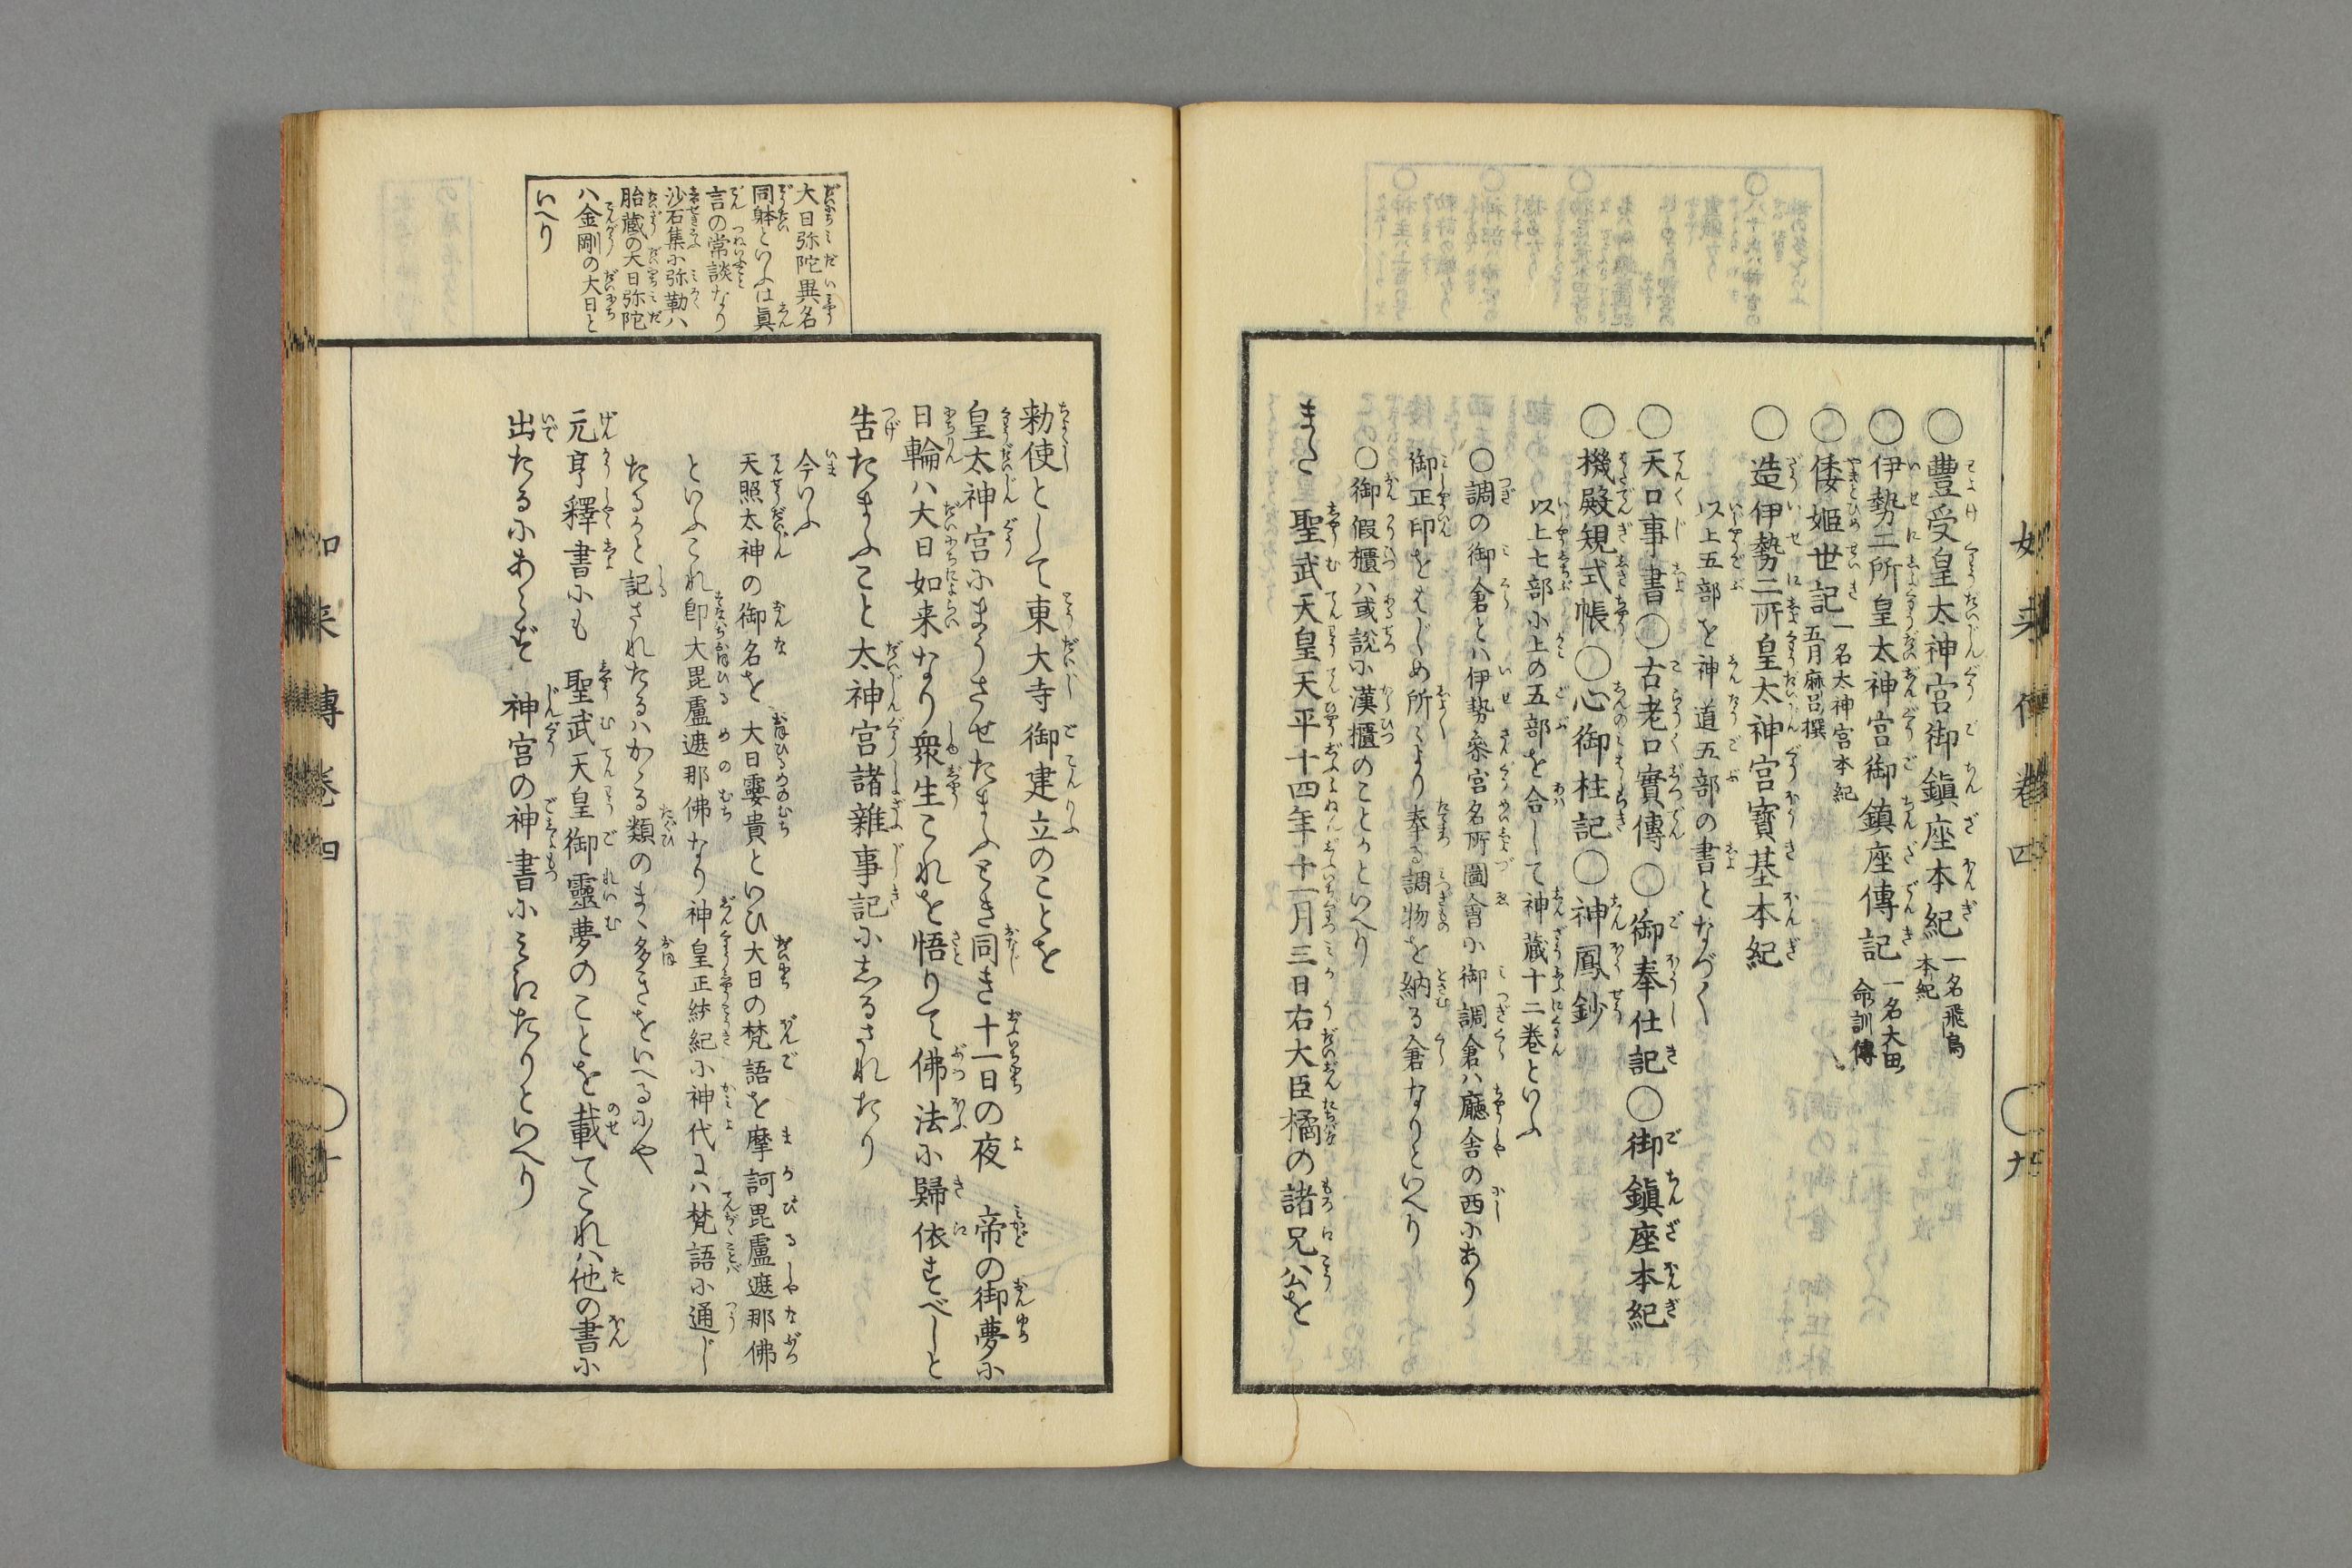 ○豊受皇太神宮御鎮座本紀 一名飛鳥本紀
○伊勢二所皇太神宮御鎮座傳記 一名大田命訓傳
○倭姫世記 一名太神宮本紀 五月麻呂撰
○造伊勢二所皇太神宮寳基本紀
以上五部を神道五部の書となづく
○天口事書○古老口實傳○御奉仕記○御鎮座本紀
○機殿䂓式帳○心御柱記○神鳳鈔
以上七部に上の五部を合して神蔵十二巻といふ
○調の御倉とハ伊勢参宮名所圖會に御調倉ハ廰舎の西にあり
御正印をはじめ所〻より奉る調物を納る倉なりといへり
○御假櫃ハ或説に漢櫃のことゝいへり
また 聖武天皇天平十四年十一月三日右大臣橘の諸兄公を
如来傳巻四
九
勅使として東大寺御建立のことを
皇太神宮にまうさせたまふとき同き十一日の夜 帝の御夢に
日輪ハ大日如来なり衆生これを悟りて佛法に歸依すべしと
告たまふこと太神宮諸雑事記にしるされたり
今いふ
天照太神の御名を 大日孁貴といひ大日の梵語を摩訶毘盧遮那佛
といふこれ即大毘盧遮那佛なり神皇正統紀に神代にハ梵語に通じ
たるかと記されたるハかゝる類のまゝ多きをいへるにや
元亨釋書にも 聖武天皇御靈夢のことを載てこれハ他の書に
出たるにあらず 神宮の神書に見えたりといへり
大日弥陀異名
同躰といふは眞
言の常談なり
沙石集に弥勒ハ
胎蔵の大日弥陀
ハ金剛の大日と
いへり
如来傳巻四